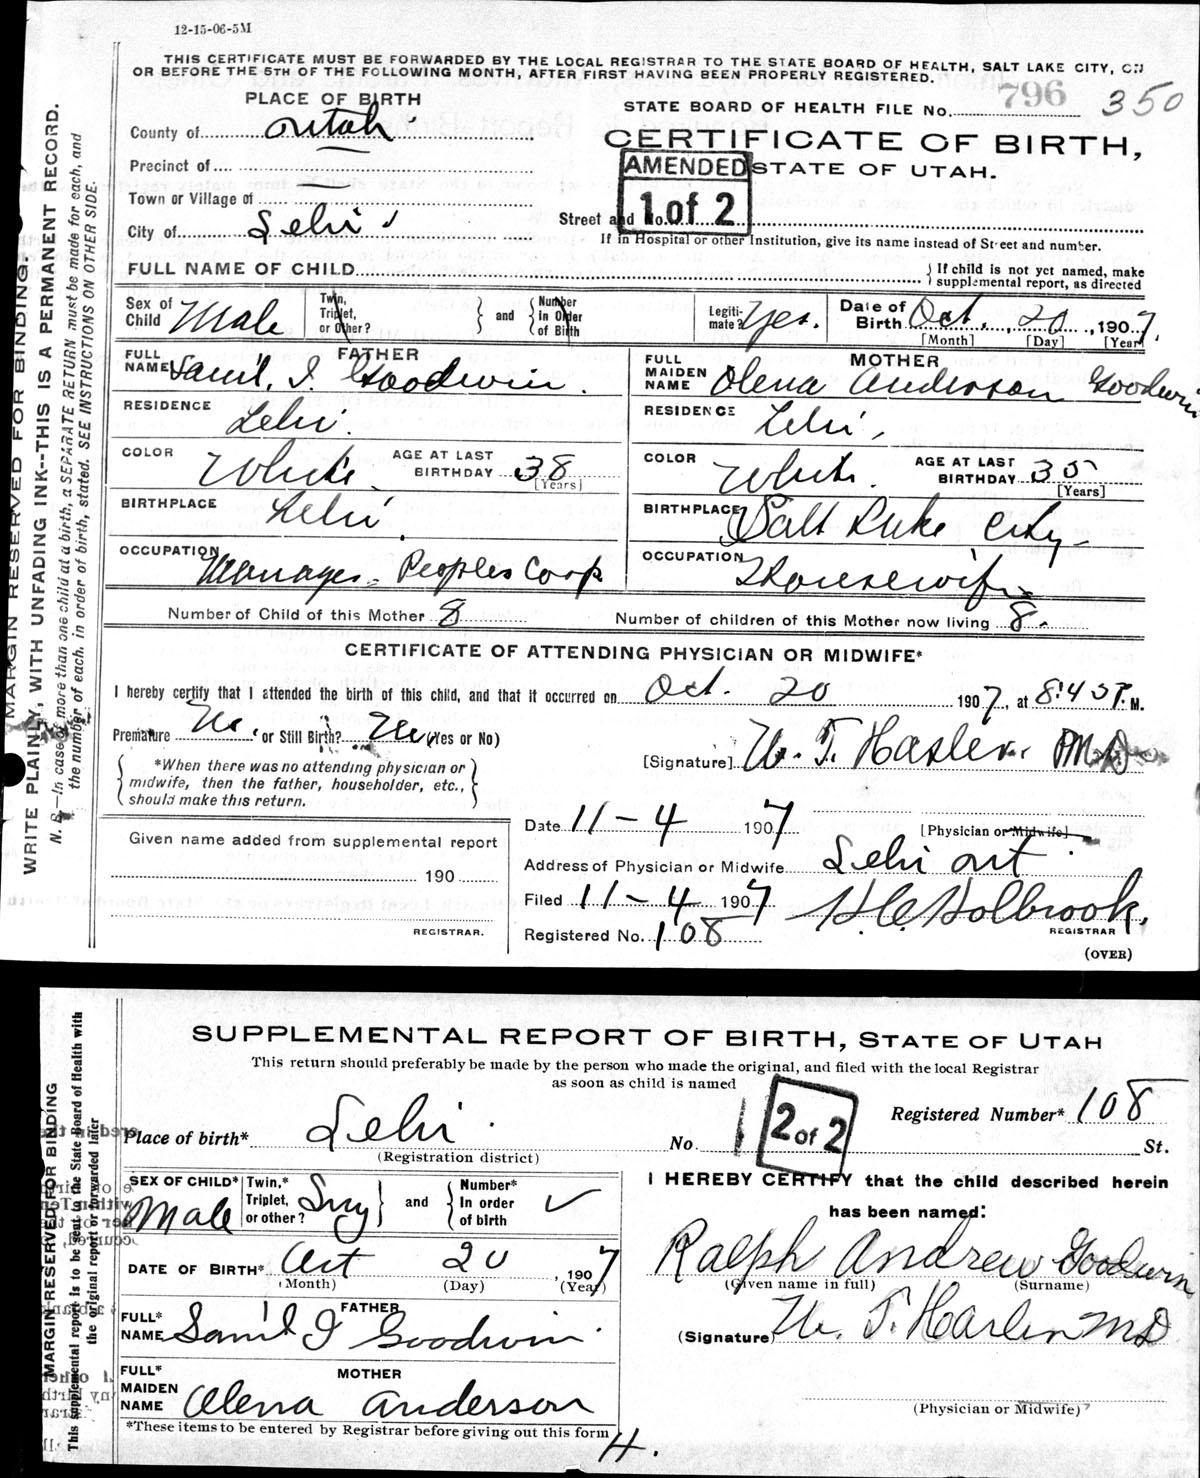 12-15-06-5M
THIS CERTIFICATE MUST BE FORWARDED BY THE LOCAL REGISTRAR TO THE STATE BOARD OF HEALTH, SALT LAKE CITY, ON
OR BEFORE THE 5TH OF THE FOLLOWING MONTH, AFTER FIRST HAVING BEEN PROPERLY REGISTERED.
PLACE OF BIRTH
STATE BOARD OF HEALTH FILE No. 796 350
County of Utah
CERTIFICATE OF BIRTH,
STATE OF UTAH.
AMENDED
1 of 2
Precinct of
Town or Village of
City of Lehi
Street and No.
If in Hospital or other Institution, give its name instead of Street and number.
FULL NAME OF CHILD
If child is not yet named, make
supplemental report, as directed
Sex of Child Male
Twin, Triplet, or Other?
and
Number in Order of Birth
Legitimate? Yes.
Date of Birth Oct. 20, 1907.
[Month] [Day] [Year]
FATHER
FULL NAME Saml. I. Goodwin.
MOTHER
FULL MAIDEN NAME Olena Anderson Goodwin
RESIDENCE Lehi.
RESIDENCE Lehi.
COLOR White
AGE AT LAST BIRTHDAY 38 [Years]
COLOR White.
AGE AT LAST BIRTHDAY 35 [Years]
BIRTHPLACE Lehi
BIRTHPLACE Salt Lake City
OCCUPATION Manager Peoples Coop
OCCUPATION Housewife
Number of Child of this Mother 8
Number of children of this Mother now living 8.
CERTIFICATE OF ATTENDING PHYSICIAN OR MIDWIFE*
I hereby certify that I attended the birth of this child, and that it occurred on Oct. 20 1907, at 8:45 P.M.
Premature No, or Still Birth? No (Yes or No)
[Signature] W. T. Hasler. M.D.
*When there was no attending physician or
midwife, then the father, householder, etc.,
should make this return.
Date 11-4 1907
[Physician or Midwife]
Given name added from supplemental report
190
REGISTRAR.
Address of Physician or Midwife Lehi Ut
Filed 11-4 1907 H.C. Holbrook.
REGISTRAR
Registered No. 108
(OVER)
MARGIN RESERVED FOR BINDING.
WRITE PLAINLY, WITH UNFADING INK--THIS IS A PERMANENT RECORD.
N. B.—In case of more than one child at a birth, a SEPARATE RETURN must be made for each, and
the number of each, in order of birth, stated. SEE INSTRUCTIONS ON OTHER SIDE.
SUPPLEMENTAL REPORT OF BIRTH, STATE OF UTAH
This return should preferably be made by the person who made the original, and filed with the local Registrar
as soon as child is named
2 of 2
Registered Number* 108
Place of birth* Lehi
(Registration district)
No. St.
SEX OF CHILD* Male
Twin,* Triplet, or other?
and
Number* In order of birth
I HEREBY CERTIFY that the child described herein
has been named:
DATE OF BIRTH* Oct 20, 1907
(Month) (Day) (Year)
Ralph Andrew Goodwin
(Given name in full) (Surname)
FATHER
FULL* NAME Saml I Goodwin
(Signature) W. T. Hasler MD
MOTHER
FULL* MAIDEN NAME Olena Anderson
(Physician or Midwife)
*These items to be entered by Registrar before giving out this form
H.
MARGIN RESERVED FOR BINDING
This supplemental report is to be sent to the State Board of Health with
the original report or forwarded later